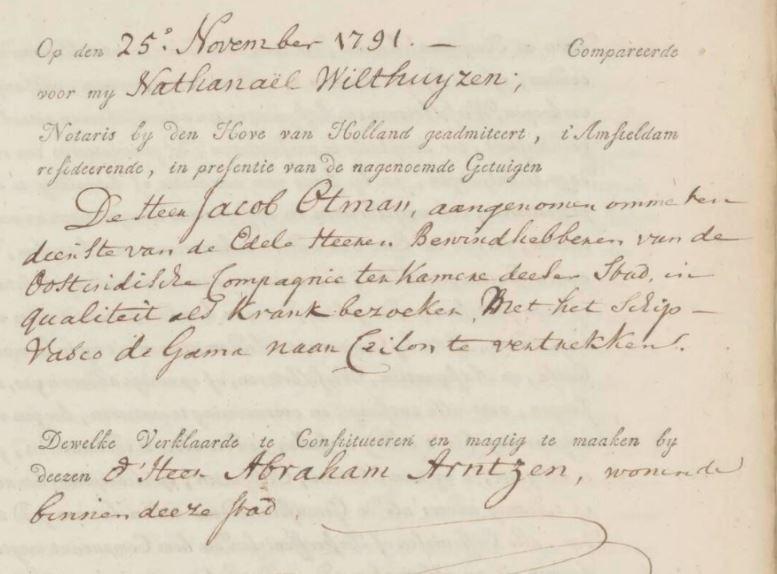 Op den 25.° November 1791. — Compareerde
voor my Nathanaël Wilthuyzen;
Notaris by den Hove van Holland geadmiteert, t'Amsteldam
resideerende, in presentie van de nagenoemde Getuigen
De Heer Jacob Otman, aangenomen omme ten
dienste van de Edele Heeren Bewindhebberen van de
Oostindische Compagnie ter Kamere deeser Stad, in
qualiteit als Krankbezoeker, Met het Schip —
Vasco de Gama naar Ceilon te vertrekken.
Dewelke Verklaarde te Constitueeren en magtig te maaken by
deezen d'Heer Abraham Arntzen, wonende
binnen deeze stad.